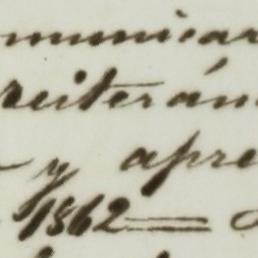 municar
reiterán
y apre
1862